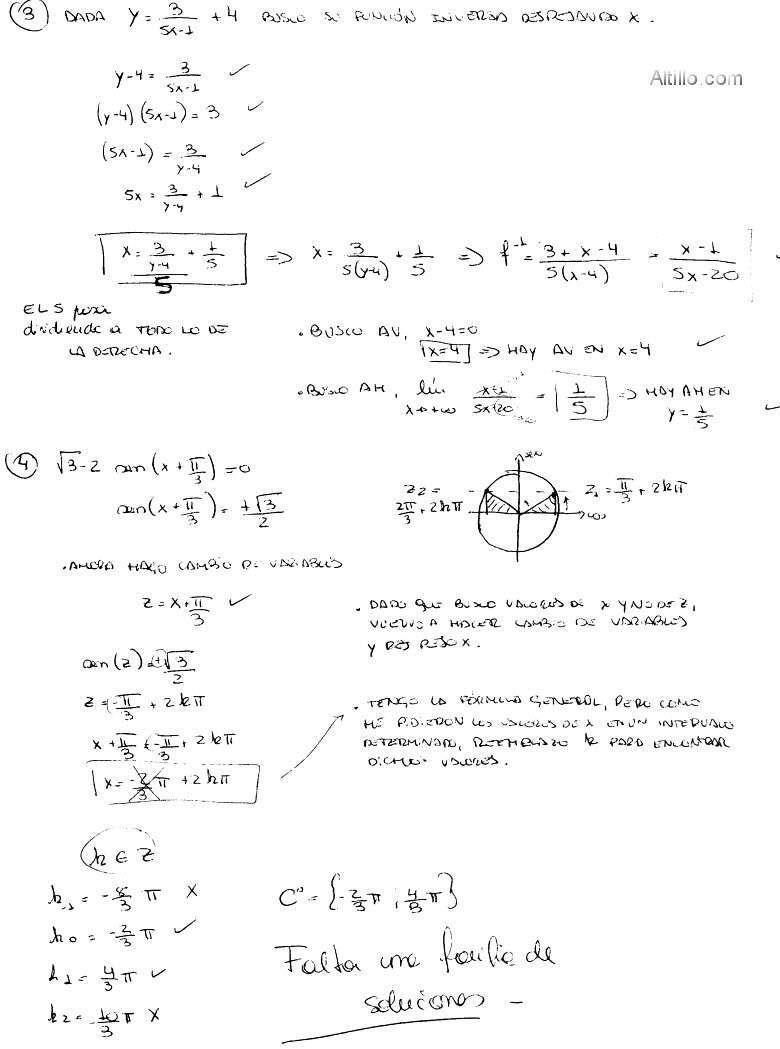 3 DADA y = 3/(5x-1) + 4 BUSCO SU FUNCIÓN INVERSA DESPEJANDO X.
Altillo.com
y-4 = 3/(5x-1) ✓
(y-4)(5x-1) = 3 ✓
(5x-1) = 3/(y-4) ✓
5x = 3/(y-4) + 1 ✓
x = (3/(y-4))/5 + 1/5 => x = 3/(5(y-4)) + 1/5 => f⁻¹ = (3+x-4)/(5(x-4)) = (x-1)/(5x-20) ✓
EL 5 pasa
dividiendo a TODO LO DE
LA DERECHA.
• BUSCO AV, x-4=0
x=4 => HAY AV EN x=4 ✓
• BUSCO AH, lím x→+∞ (x-1)/(5x-20) = 1/5 => HAY AH EN
y = 1/5 ✓
4 √3 - 2 sen(x + π/3) = 0
sen(x + π/3) = +√3/2
sen
Z₂ = 2π/3 + 2kπ
Z₁ = π/3 + 2kπ
cos
• AHORA HAGO CAMBIO DE VARIABLES
Z = x + π/3 ✓
sen(Z) = +√3/2
Z = -π/3 + 2kπ
x + π/3 = -π/3 + 2kπ
x = -2/3 π + 2kπ
• DADO QUE BUSCO VALORES DE X Y NO DE Z,
VUELVO A HACER CAMBIO DE VARIABLES
Y DESPEJO X.
• TENGO LA FÓRMULA GENERAL, PERO COMO
ME PIDIERON LOS VALORES DE X EN UN INTERVALO
DETERMINADO, REEMPLAZO K PARA ENCONTRAR
DICHOS VALORES.
k ∈ Z
k₋₁ = -8/3 π X
k₀ = -2/3 π ✓
k₁ = 4/3 π ✓
k₂ = 10/3 π X
C⁰ = {-2/3 π ; 4/3 π}
Falta una familia de
soluciones -